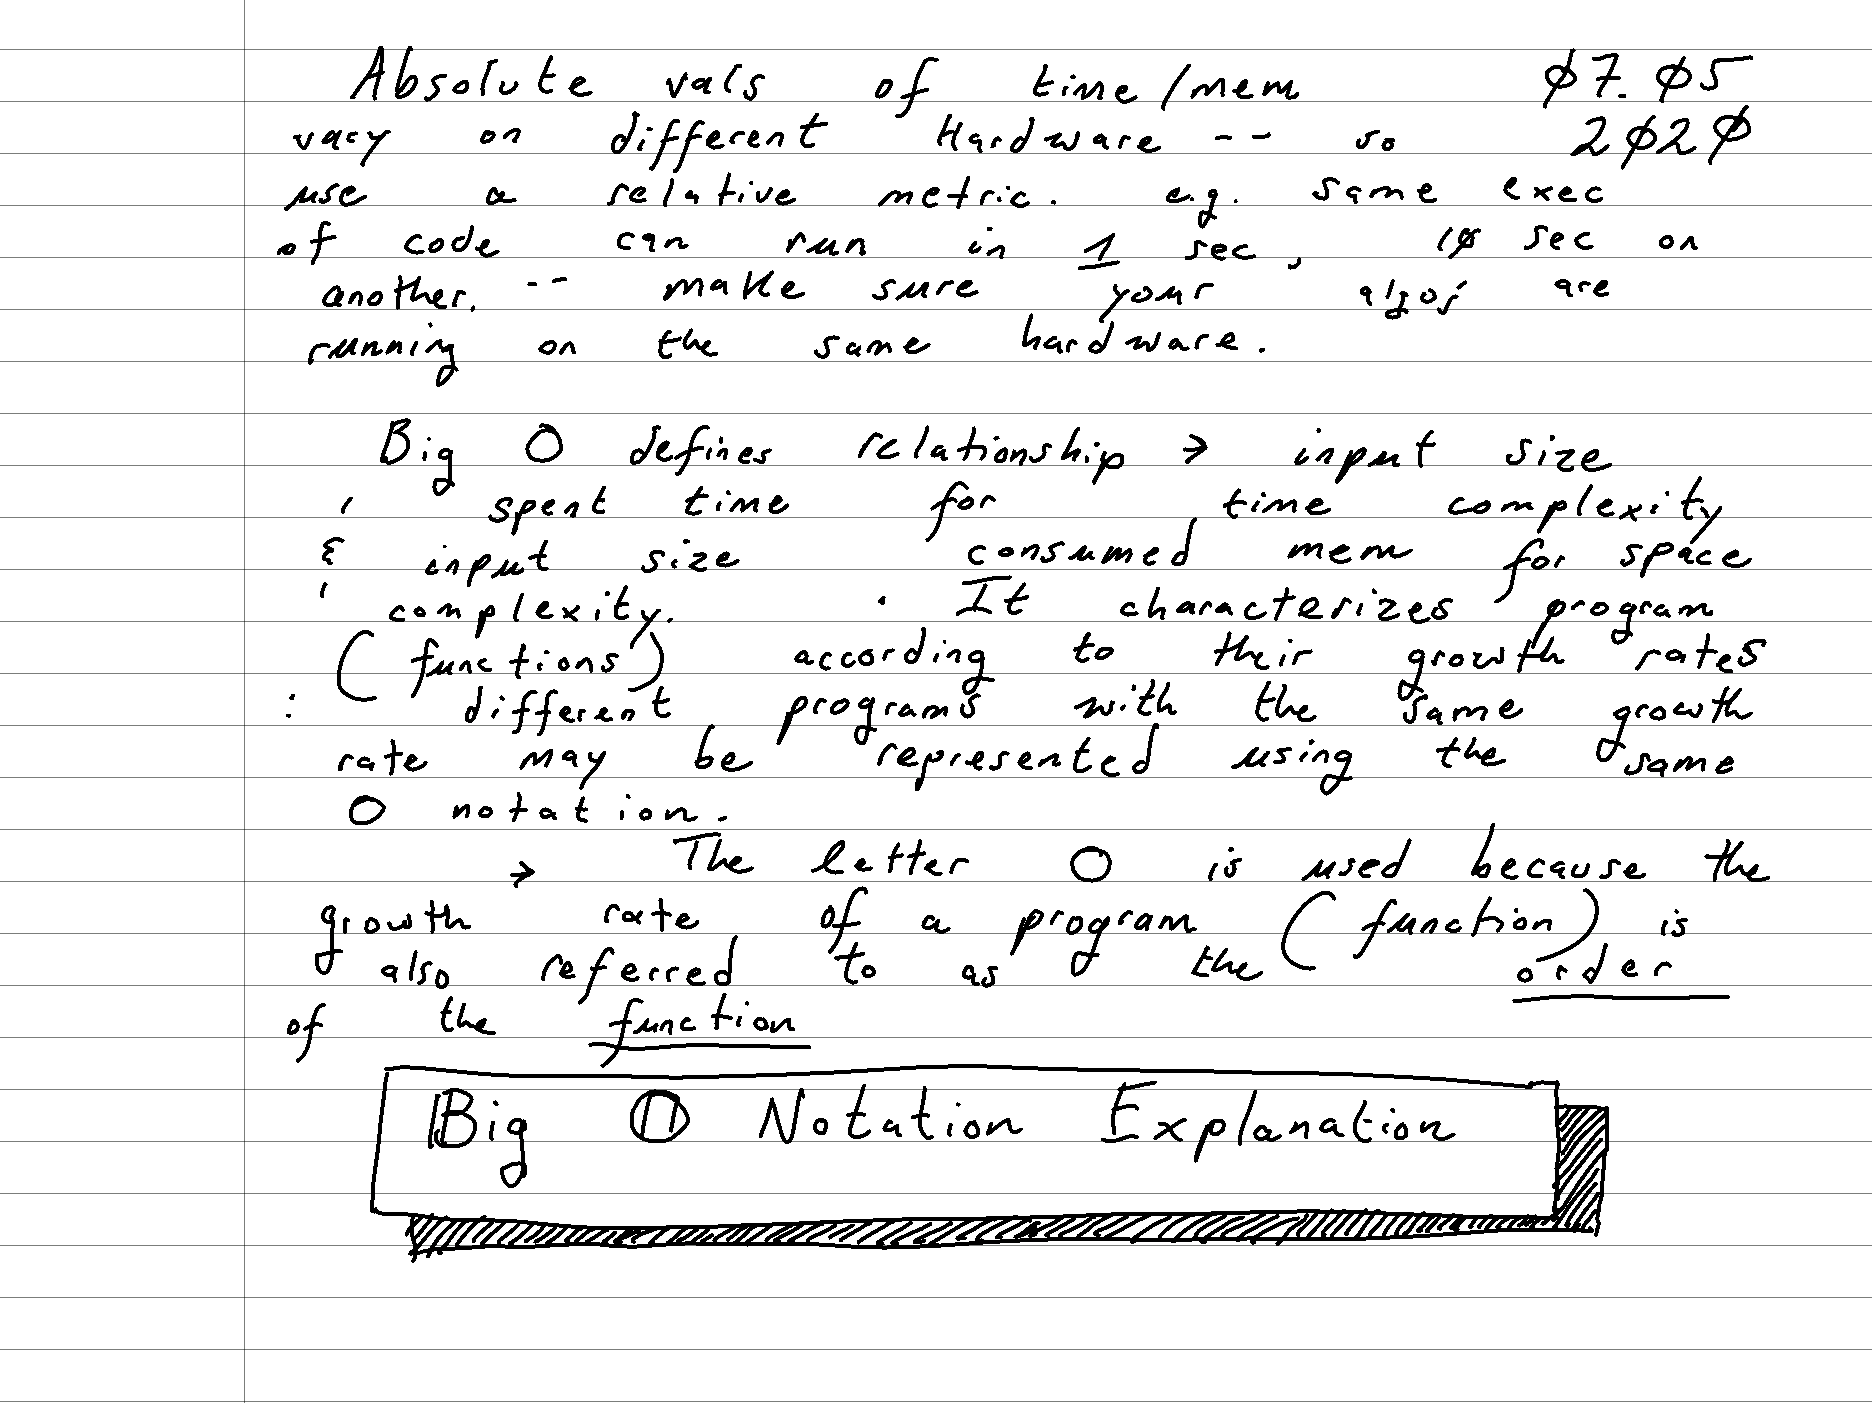 Absolute vals of time/mem 07.05
vary on different Hardware -- so 2020
use a relative metric. e.g. same exec
of code can run in 1 sec, 10 sec on
another. -- make sure your algos are
running on the same hardware.
Big O defines relationship → input size
spent time for time complexity
& input size consumed mem for space
complexity. . It characterizes program
(functions) according to their growth rates
: different programs with the same growth
rate may be represented using the same
O notation.
→ The letter O is used because the
growth rate of a program (function) is
also referred to as the order
of the function
Big O Notation Explanation